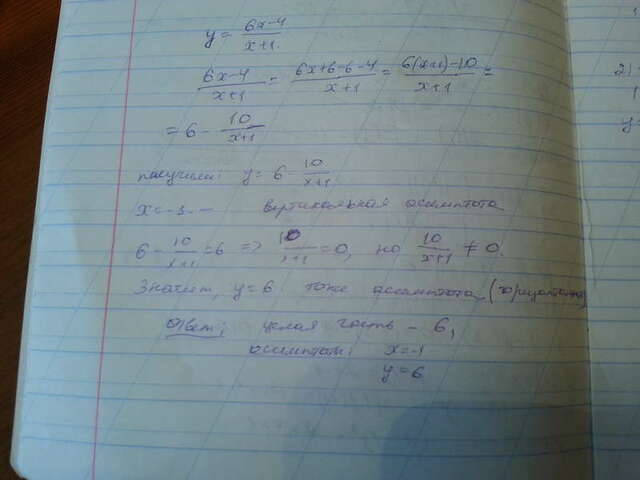 y = (6x-4)/(x+1)
(6x-4)/(x+1) = (6x+6-6-4)/(x+1) = (6(x+1)-10)/(x+1) =
= 6 - 10/(x+1)
получили: y = 6 - 10/(x+1)
x = -1 - вертикальная асимптота
6 - 10/(x+1) = 6 => 10/(x+1) = 0, но 10/(x+1) ≠ 0.
Значит, y = 6 тоже ассимптота (
Ответ: целая часть - 6,
асимптоты: x = -1
y = 6
2)
1
y=